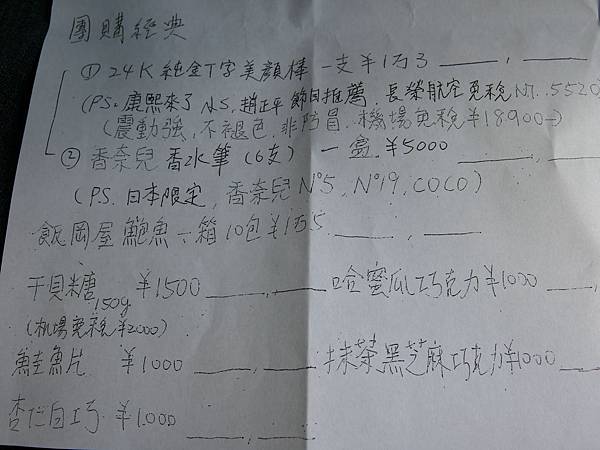 團購經典
① 24K 純金T字美顏棒 一支 ¥1万3 ______, ______
(P.S. 康熙來了 N.S. 趙正平 節目推薦, 長榮航空免稅NT. 5520
(震動強, 不褪色, 非防冒, 機場免稅¥18900-)
② 香奈兒 香水筆 (6支) 一盒 ¥5000 ______, ______
(P.S. 日本限定, 香奈兒 Nº5, Nº19, COCO)
飯岡屋 鮑魚 一箱 10包 ¥1万5 ______, ______
干貝糖 150g ¥1500 ______, ______ 哈蜜瓜巧克力 ¥1000 ______,
(机場免稅 ¥2000)
鮭魚片 ¥1000 ______, ______ 抹茶黑芝麻巧克力 ¥1000 ______
杏仁白巧 ¥1.000 ______, ______